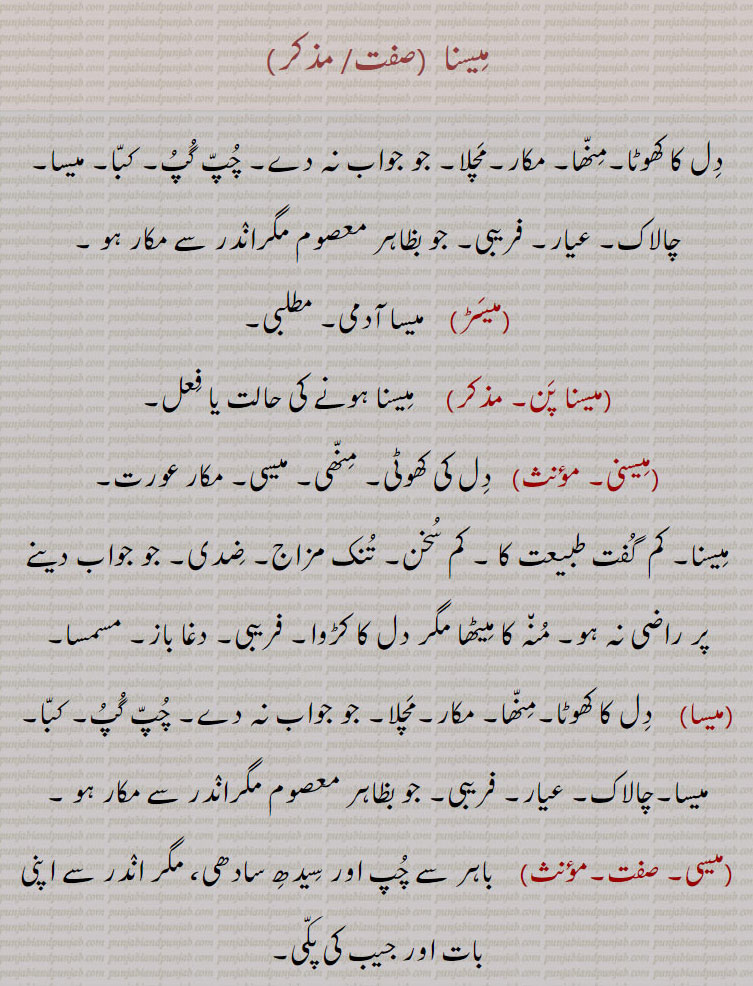 مِیسنا (صفت/ مذکر)
دِل کا کھوٹا۔مِنّھا۔ مکار۔مَچلا۔ جو جواب نہ دے۔ چُپّ گُپُ۔ کبّا۔ میسا۔
چالاک۔ عیار۔ فریبی۔ جو بظاہر معصوم مگراندٛر سے مکار ہو ۔
(میسَڑ) میسا آدمی۔ مطلبی۔
(میسنا پَن۔ مذکر) مِیسنا ہونے کی حالت یا فِعل۔
(مِیسنی۔ مؤنث) دِل کی کھوٹی۔ مِنّھی۔ میسی۔ مکار عورت۔
مِیسنا۔ کم گُفت طبیعت کا ۔ کم سُخن۔ تُنک مزاج۔ ضِدی۔ جو جواب دینے
پر راضی نہ ہو۔ مُنہّ کا مِیٹھا مگر دل کا کڑوا۔ فریبی۔ دغا باز۔ مسمسا۔
(میسا) دِل کا کھوٹا۔مِنّھا۔ مکار۔مَچلا۔ جو جواب نہ دے۔ چُپّ گُپُ۔ کبّا۔
میسا۔چالاک۔ عیار۔ فریبی۔ جو بظاہر معصوم مگراندٛر سے مکار ہو ۔
(میسی۔ صفت۔مؤنث) باہر سے چُپ اور سِیدھِ سادھی، مگر اندٛر سے اپنی
بات اور جیب کی پَکّی۔